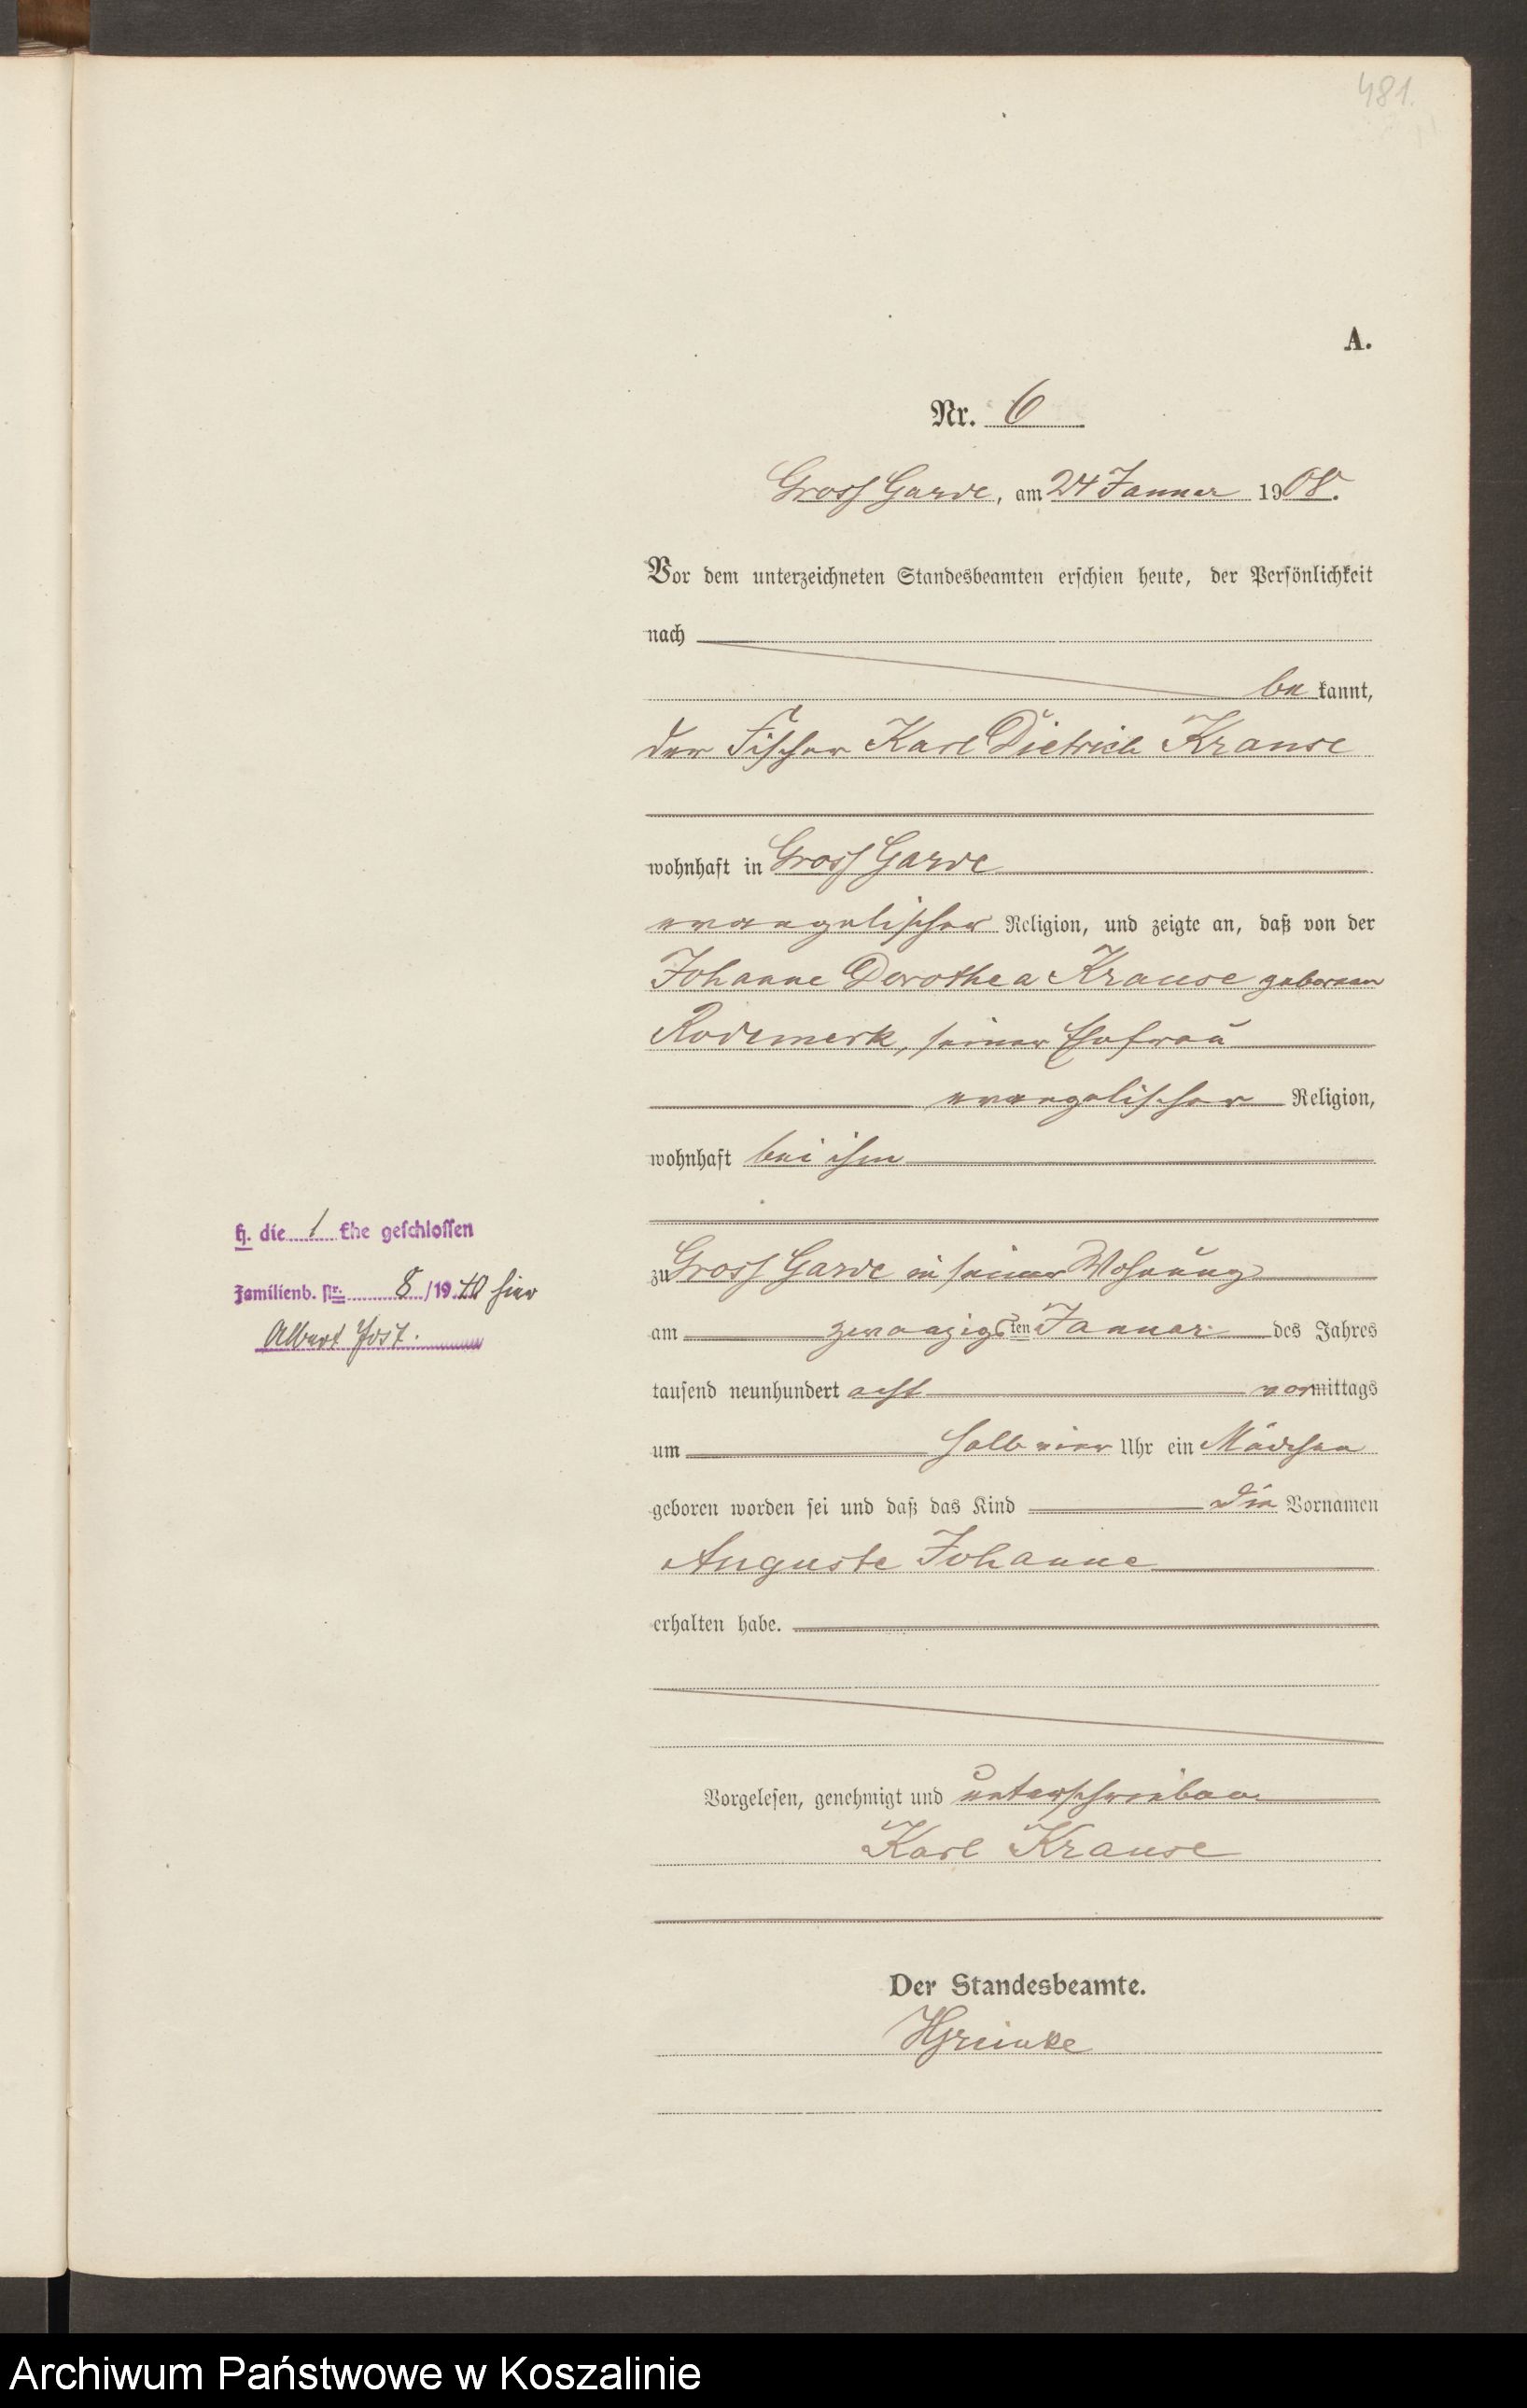 481.
A.
Nr. 6
Gross Garde, am 24 Januar 1908.
Vor dem unterzeichneten Standesbeamten erschien heute, der Persönlichkeit
nach
be kannt,
der Fischer Karl Dietrich Krause
wohnhaft in Gross Garde
evangelischer Religion, und zeigte an, daß von der
Johanne Dorothea Krause geborenen
Rodemerk, seiner Ehefrau
evangelischer Religion,
wohnhaft bei ihm
H. die 1 Ehe geschlossen
Familienb. Nr. 8/1940 hier
Albert Jost.
zu Gross Garde in seiner Wohnung
am zwanzigsten Januar des Jahres
tausend neunhundert acht vormittags
um halb vier Uhr ein Mädchen
geboren worden sei und daß das Kind die Vornamen
Auguste Johanne
erhalten habe.
Vorgelesen, genehmigt und unterschrieben
Karl Krause
Der Standesbeamte.
Archiwum Państwowe w Koszalinie